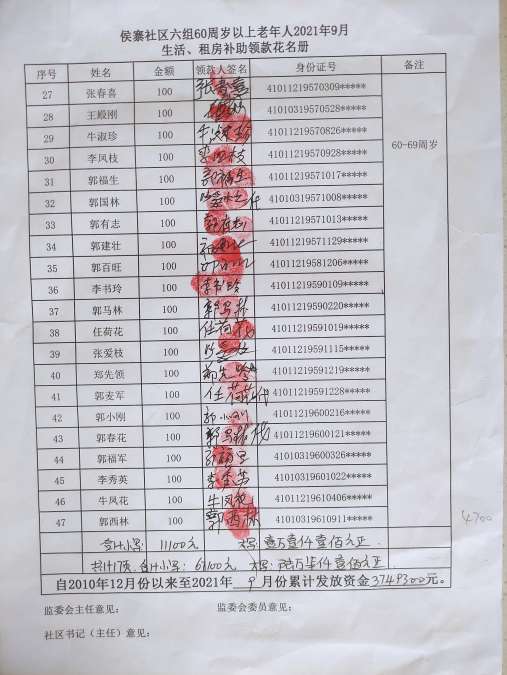 侯寨社区六组60周岁以上老年人2021年9月
生活、租房补助领款花名册
序号 姓名 金额 领款人签名 身份证号 备注
27 张春喜 100 张春喜 41011219570309*****
28 王殿刚 100 41010319570528*****
29 牛淑珍 100 牛淑珍 41011219570826***** 60-69周岁
30 李凤枝 100 李凤枝 41011219570928*****
31 郭福生 100 郭福生 41011219571017*****
32 郭国林 100 41010319571008*****
33 郭有志 100 郭有志 41011219571013*****
34 郭建壮 100 41011219571129*****
35 郭百旺 100 41011219581206*****
36 李书玲 100 李书玲 41011219590109*****
37 郭马林 100 郭马林 41011219590220*****
38 任荷花 100 任荷花 41011219591019*****
39 张爱枝 100 41011219591115*****
40 郑先领 100 41011219591219*****
41 郭麦军 100 任荷花代 41011219591228*****
42 郭小刚 100 郭小刚 41011219600216*****
43 郭春花 100 郭马林代 41011219600121*****
44 郭福军 100 41010319600326*****
45 李秀英 100 李秀英 41010319601022*****
46 牛凤花 100 牛凤花 41011219610406*****
47 郭西林 100 郭西林 41010319610911*****
4700
合计小写: 11100元 大写: 壹万壹仟壹佰元正
共计1页, 合计小写: 67100元 大写: 陆万柒仟壹佰元正
自2010年12月份以来至2021年 9 月份累计发放资金3749300元。
监委会主任意见: 监委会委员意见:
社区书记（主任）意见: